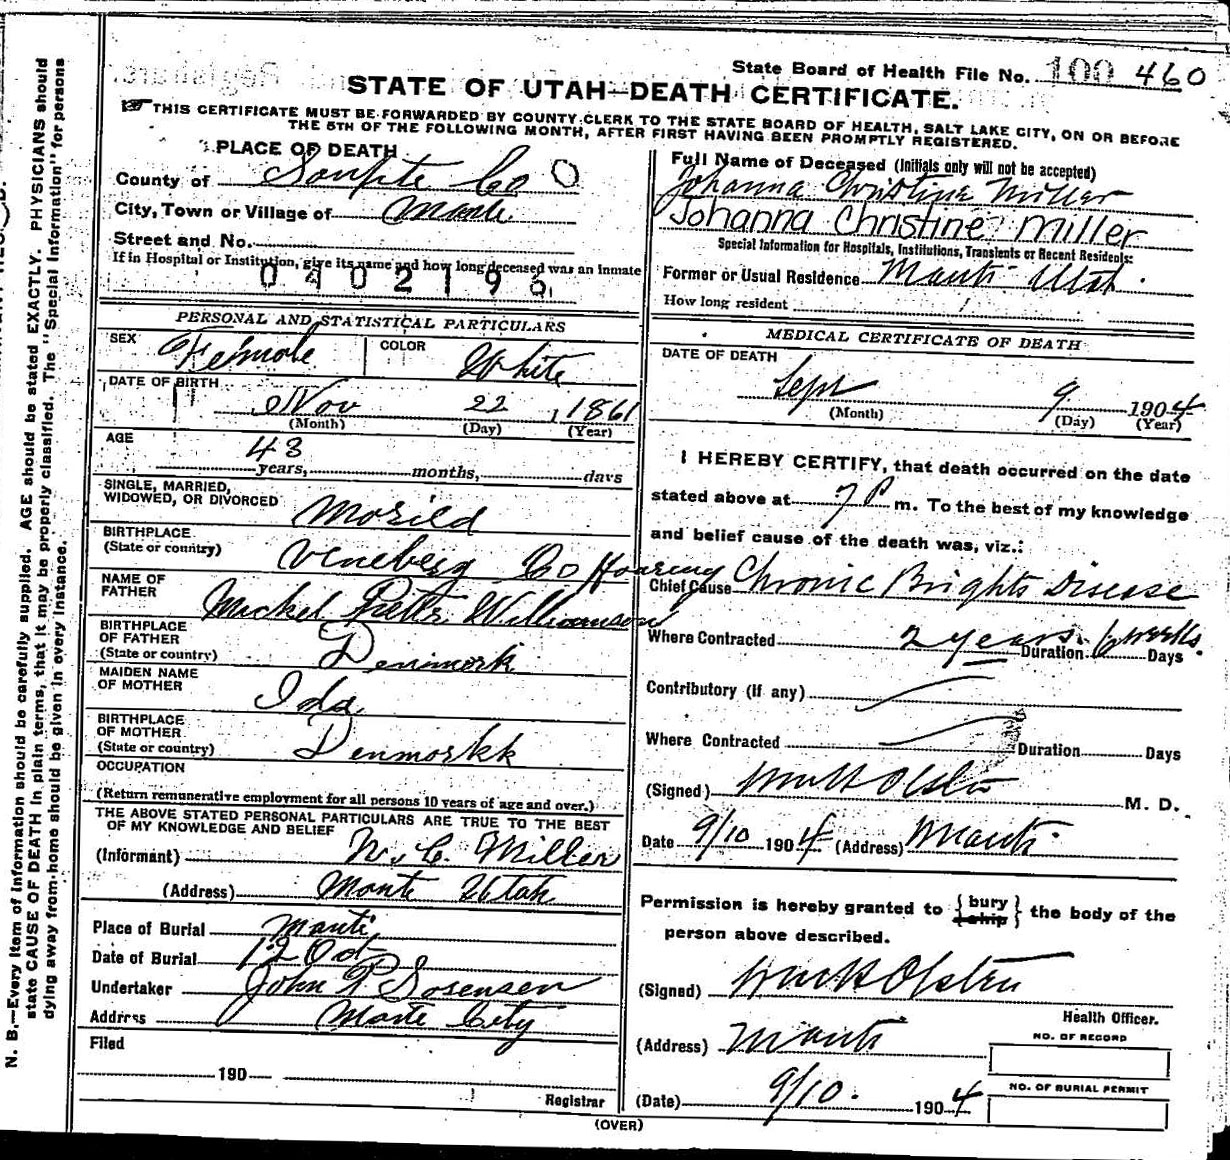 State Board of Health File No. 100 460
STATE OF UTAH—DEATH CERTIFICATE.
THIS CERTIFICATE MUST BE FORWARDED BY COUNTY CLERK TO THE STATE BOARD OF HEALTH, SALT LAKE CITY, ON OR BEFORE
THE 5TH OF THE FOLLOWING MONTH, AFTER FIRST HAVING BEEN PROMPTLY REGISTERED.
PLACE OF DEATH
County of Sanpete Co
City, Town or Village of Mante
Street and No.
If in Hospital or Institution, give its name and how long deceased was an inmate
0402196
PERSONAL AND STATISTICAL PARTICULARS
SEX Female COLOR White
DATE OF BIRTH
Nov 22, 1861
(Month) (Day) (Year)
AGE 43
years, months, days
SINGLE, MARRIED,
WIDOWED, OR DIVORCED Moried
BIRTHPLACE
(State or country) Veneberg Co
NAME OF
FATHER Mickel Peter Williamson
BIRTHPLACE
OF FATHER
(State or country) Denmork
MAIDEN NAME
OF MOTHER Ida
BIRTHPLACE
OF MOTHER
(State or country) Denmorkk
OCCUPATION
(Return remunerative employment for all persons 10 years of age and over.)
THE ABOVE STATED PERSONAL PARTICULARS ARE TRUE TO THE BEST
OF MY KNOWLEDGE AND BELIEF
(Informant) N. C. Miller
(Address) Monte Utah
Place of Burial Manti
Date of Burial 12
Undertaker John P Sorensen
Address Monte City
Filed
190
Registrar
Full Name of Deceased (Initials only will not be accepted)
Johanna Christine Miller
Johanna Christine Miller
Special Information for Hospitals, Institutions, Transients or Recent Residents:
Former or Usual Residence Manti Utah.
How long resident
MEDICAL CERTIFICATE OF DEATH
DATE OF DEATH
Sept 9 1904
(Month) (Day) (Year)
I HEREBY CERTIFY, that death occurred on the date
stated above at 7 P m. To the best of my knowledge
and belief cause of the death was, viz.:
Chief Cause Chronic Brights Disease
Where Contracted 2 years. Duration 6 weeks. Days
Contributory (if any)
Where Contracted Duration Days
(Signed) Olsten M. D.
Date 9/10 1904 (Address) Manti
Permission is hereby granted to {bury ship} the body of the
person above described.
(Signed) Olsten
Health Officer.
(Address) Manti
NO. OF RECORD
(Date) 9/10. 1904
NO. OF BURIAL PERMIT
(OVER)
N. B.—Every item of information should be carefully supplied. AGE should be stated EXACTLY. PHYSICIANS should
state CAUSE OF DEATH in plain terms, that it may be properly classified. The "Special Information" for persons
dying away from home should be given in every instance.